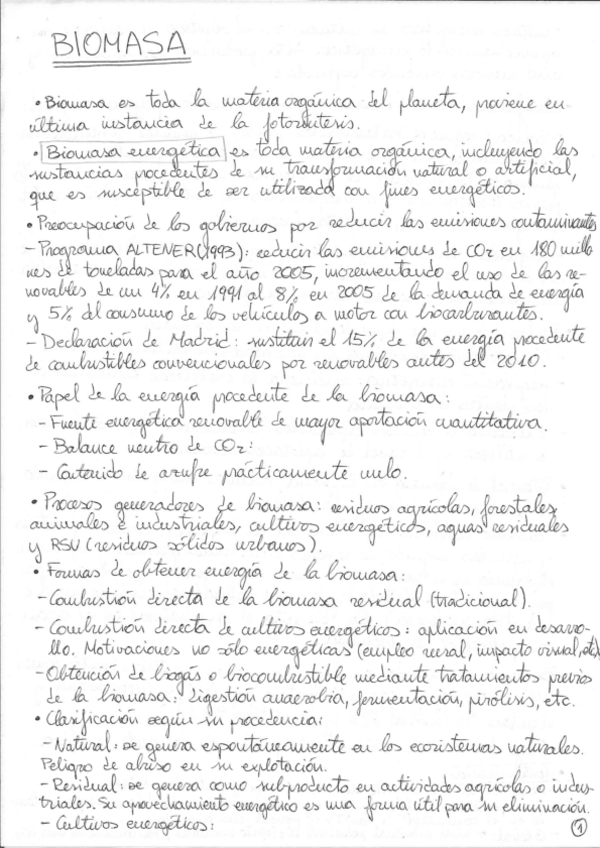 BIOMASA
• Biomasa es toda la materia orgánica del planeta, proviene en
última instancia de la fotosíntesis.
• Biomasa energética es toda materia orgánica, incluyendo las
sustancias procedentes de su transformación natural o artificial,
que es susceptible de ser utilizada con fines energéticos.
• Preocupación de los gobiernos por reducir las emisiones contaminantes
- Programa ALTENER (1993): reducir las emisiones de CO2 en 180 millo
nes de toneladas para el año 2005, incrementando el uso de las re-
novables de un 4% en 1991 al 8% en 2005 de la demanda de energía
y 5% del consumo de los vehículos a motor con biocarburantes.
- Declaración de Madrid: sustituir el 15% de la energía procedente
de combustibles convencionales por renovables antes del 2010.
• Papel de la energía procedente de la biomasa:
- Fuente energética renovable de mayor aportación cuantitativa.
- Balance neutro de CO2:
- Contenido de azufre prácticamente nulo.
• Procesos generadores de biomasa: residuos agrícolas, forestales,
animales e industriales, cultivos energéticos, aguas residuales
y RSU (residuos sólidos urbanos).
• Formas de obtener energía de la biomasa:
- Combustión directa de la biomasa residual (tradicional).
- Combustión directa de cultivos energéticos: aplicación en desarro-
llo. Motivaciones no sólo energéticas (empleo rural, impacto visual, etc)
- Obtención de biogás o biocombustible mediante tratamientos previos
de la biomasa: digestión anaerobia, fermentación, pirólisis, etc.
• Clasificación según su procedencia:
- Natural: se genera espontáneamente en los ecosistemas naturales.
Peligro de abuso en su explotación.
- Residual: se genera como subproducto en actividades agrícolas o indus-
triales. Su aprovechamiento energético es una forma útil para su eliminación.
- Cultivos energéticos:
1